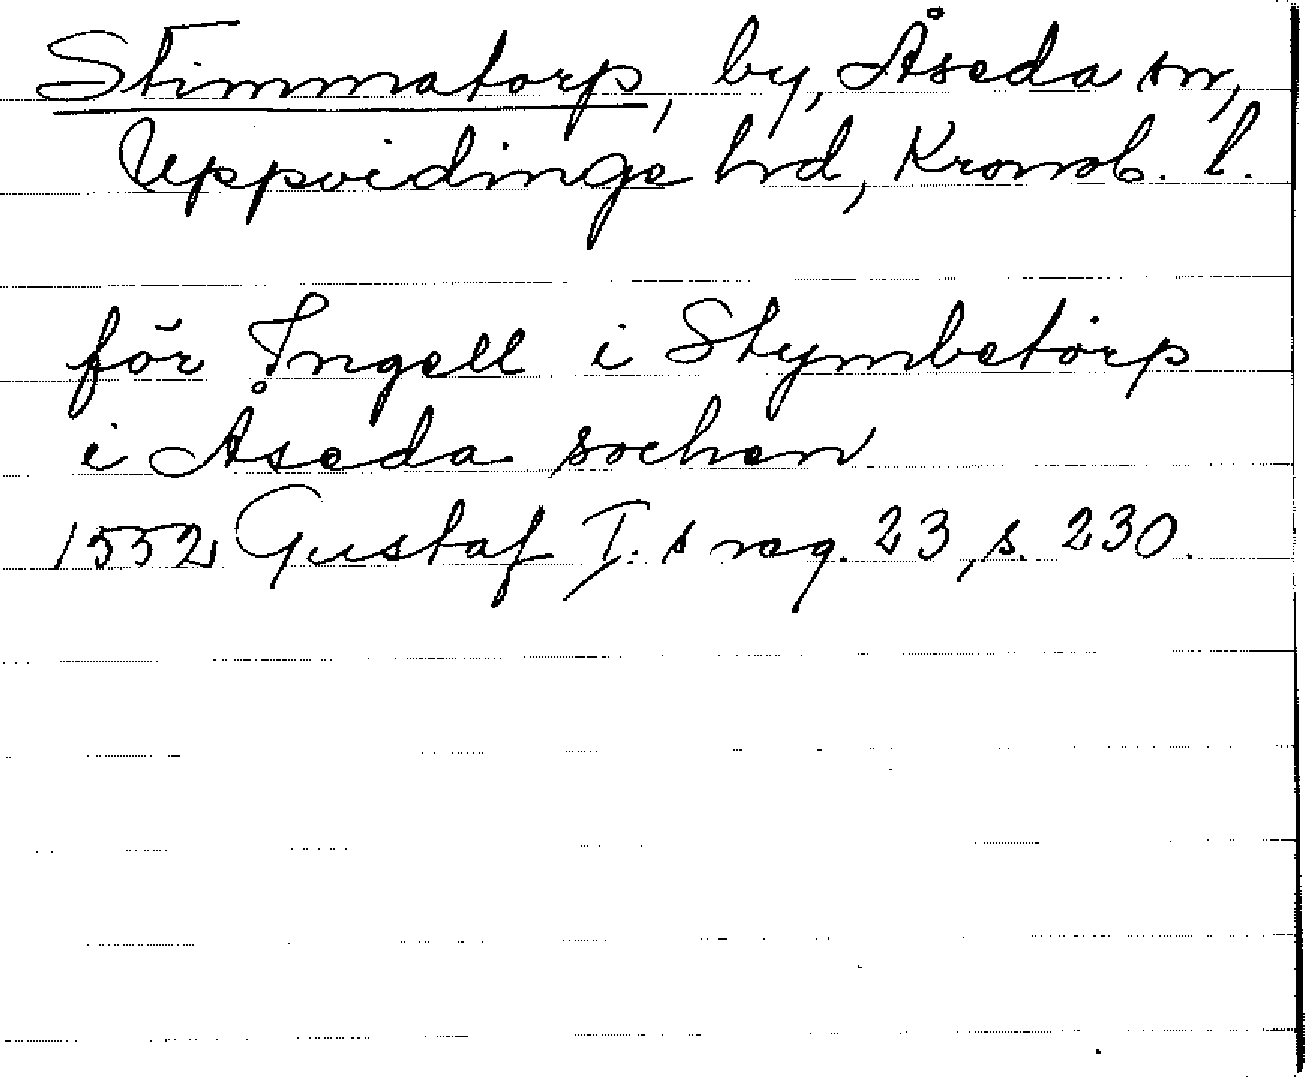 Stimmatorp, by, Åseda sn,
Uppvidinge hrd, Kronob. l.
för Ingell i Stymbetorp
i Åseda sochen
1552 Gustaf I:s reg. 23, s. 230.